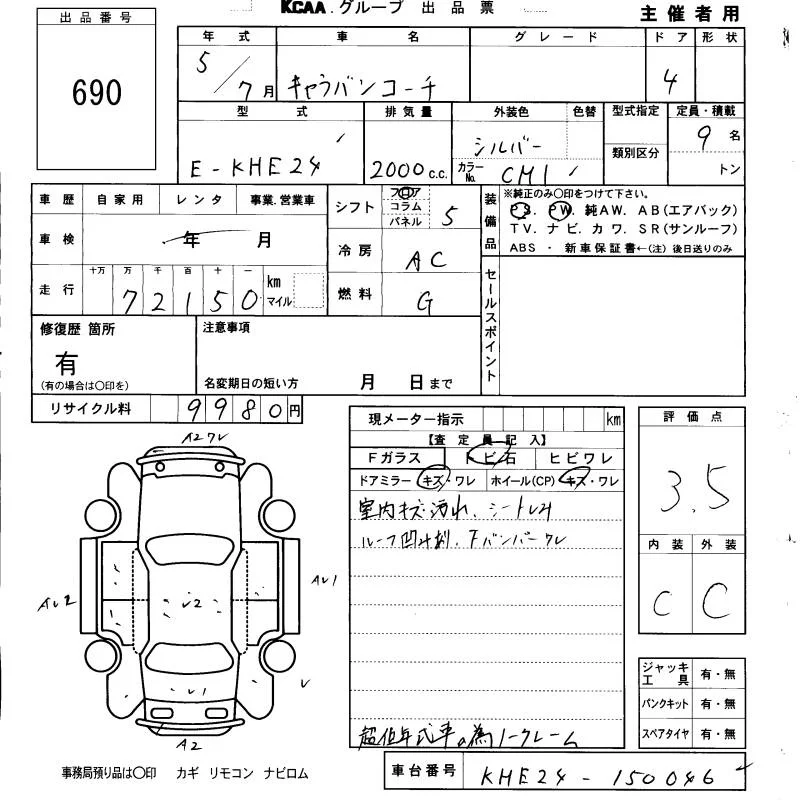 KCAA.グループ 出品票
主催者用
出品番号
690
年式 車名 グレード ドア 形状
5/7月 キャラバンコーチ 4
型式 排気量 外装色 色替 型式指定 定員・積載
E-KHE24 2000 c.c. シルバー 9名
カラーNo. CM1 類別区分 トン
車歴 自家用 レンタ 事業.営業車
シフト フロア コラム パネル 5
装備品 ※純正のみ〇印をつけて下さい。
PS. PW. 純AW. AB(エアバック)
TV. ナビ. カワ. SR(サンルーフ)
ABS ・ 新車保証書←(注) 後日送りのみ
車検 年 月
冷房 AC
走行 十万 万 千 百 十 一
72150 km マイル
燃料 G
セールスポイント
修復歴 箇所
有
(有の場合は〇印を)
注意事項
名変期日の短い方 月 日まで
リサイクル料 9980円
現メーター指示 km
【査定員記入】
Fガラス トビ石 ヒビワレ
ドアミラー キズ・ワレ ホイール(CP) キズ・ワレ
室内キズ汚れ、シート
ルーフ凹 、Fバンパーワレ
超低年式車の為ノークレーム
評価点
3.5
内装 外装
C C
ジャッキ工具 有・無
パンクキット 有・無
スペアタイヤ 有・無
A2ワレ
AU2
U2
AU1
U1
U
A2
事務局預り品は〇印 カギ リモコン ナビロム
車台番号 KHE24-150046